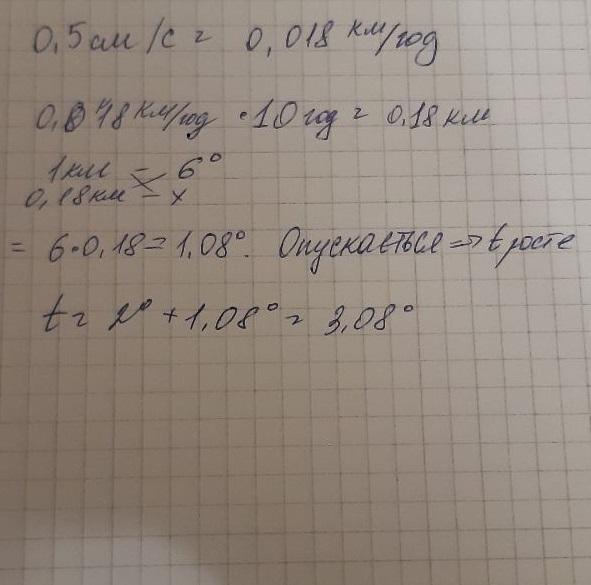 0,5 см/с = 0,018 км/год
0,018 км/год · 10 год = 0,18 км
1 км – 6°
0,18 км – x
= 6·0,18 = 1,08°. Опускається => t росте
t = 2° + 1,08° = 3,08°